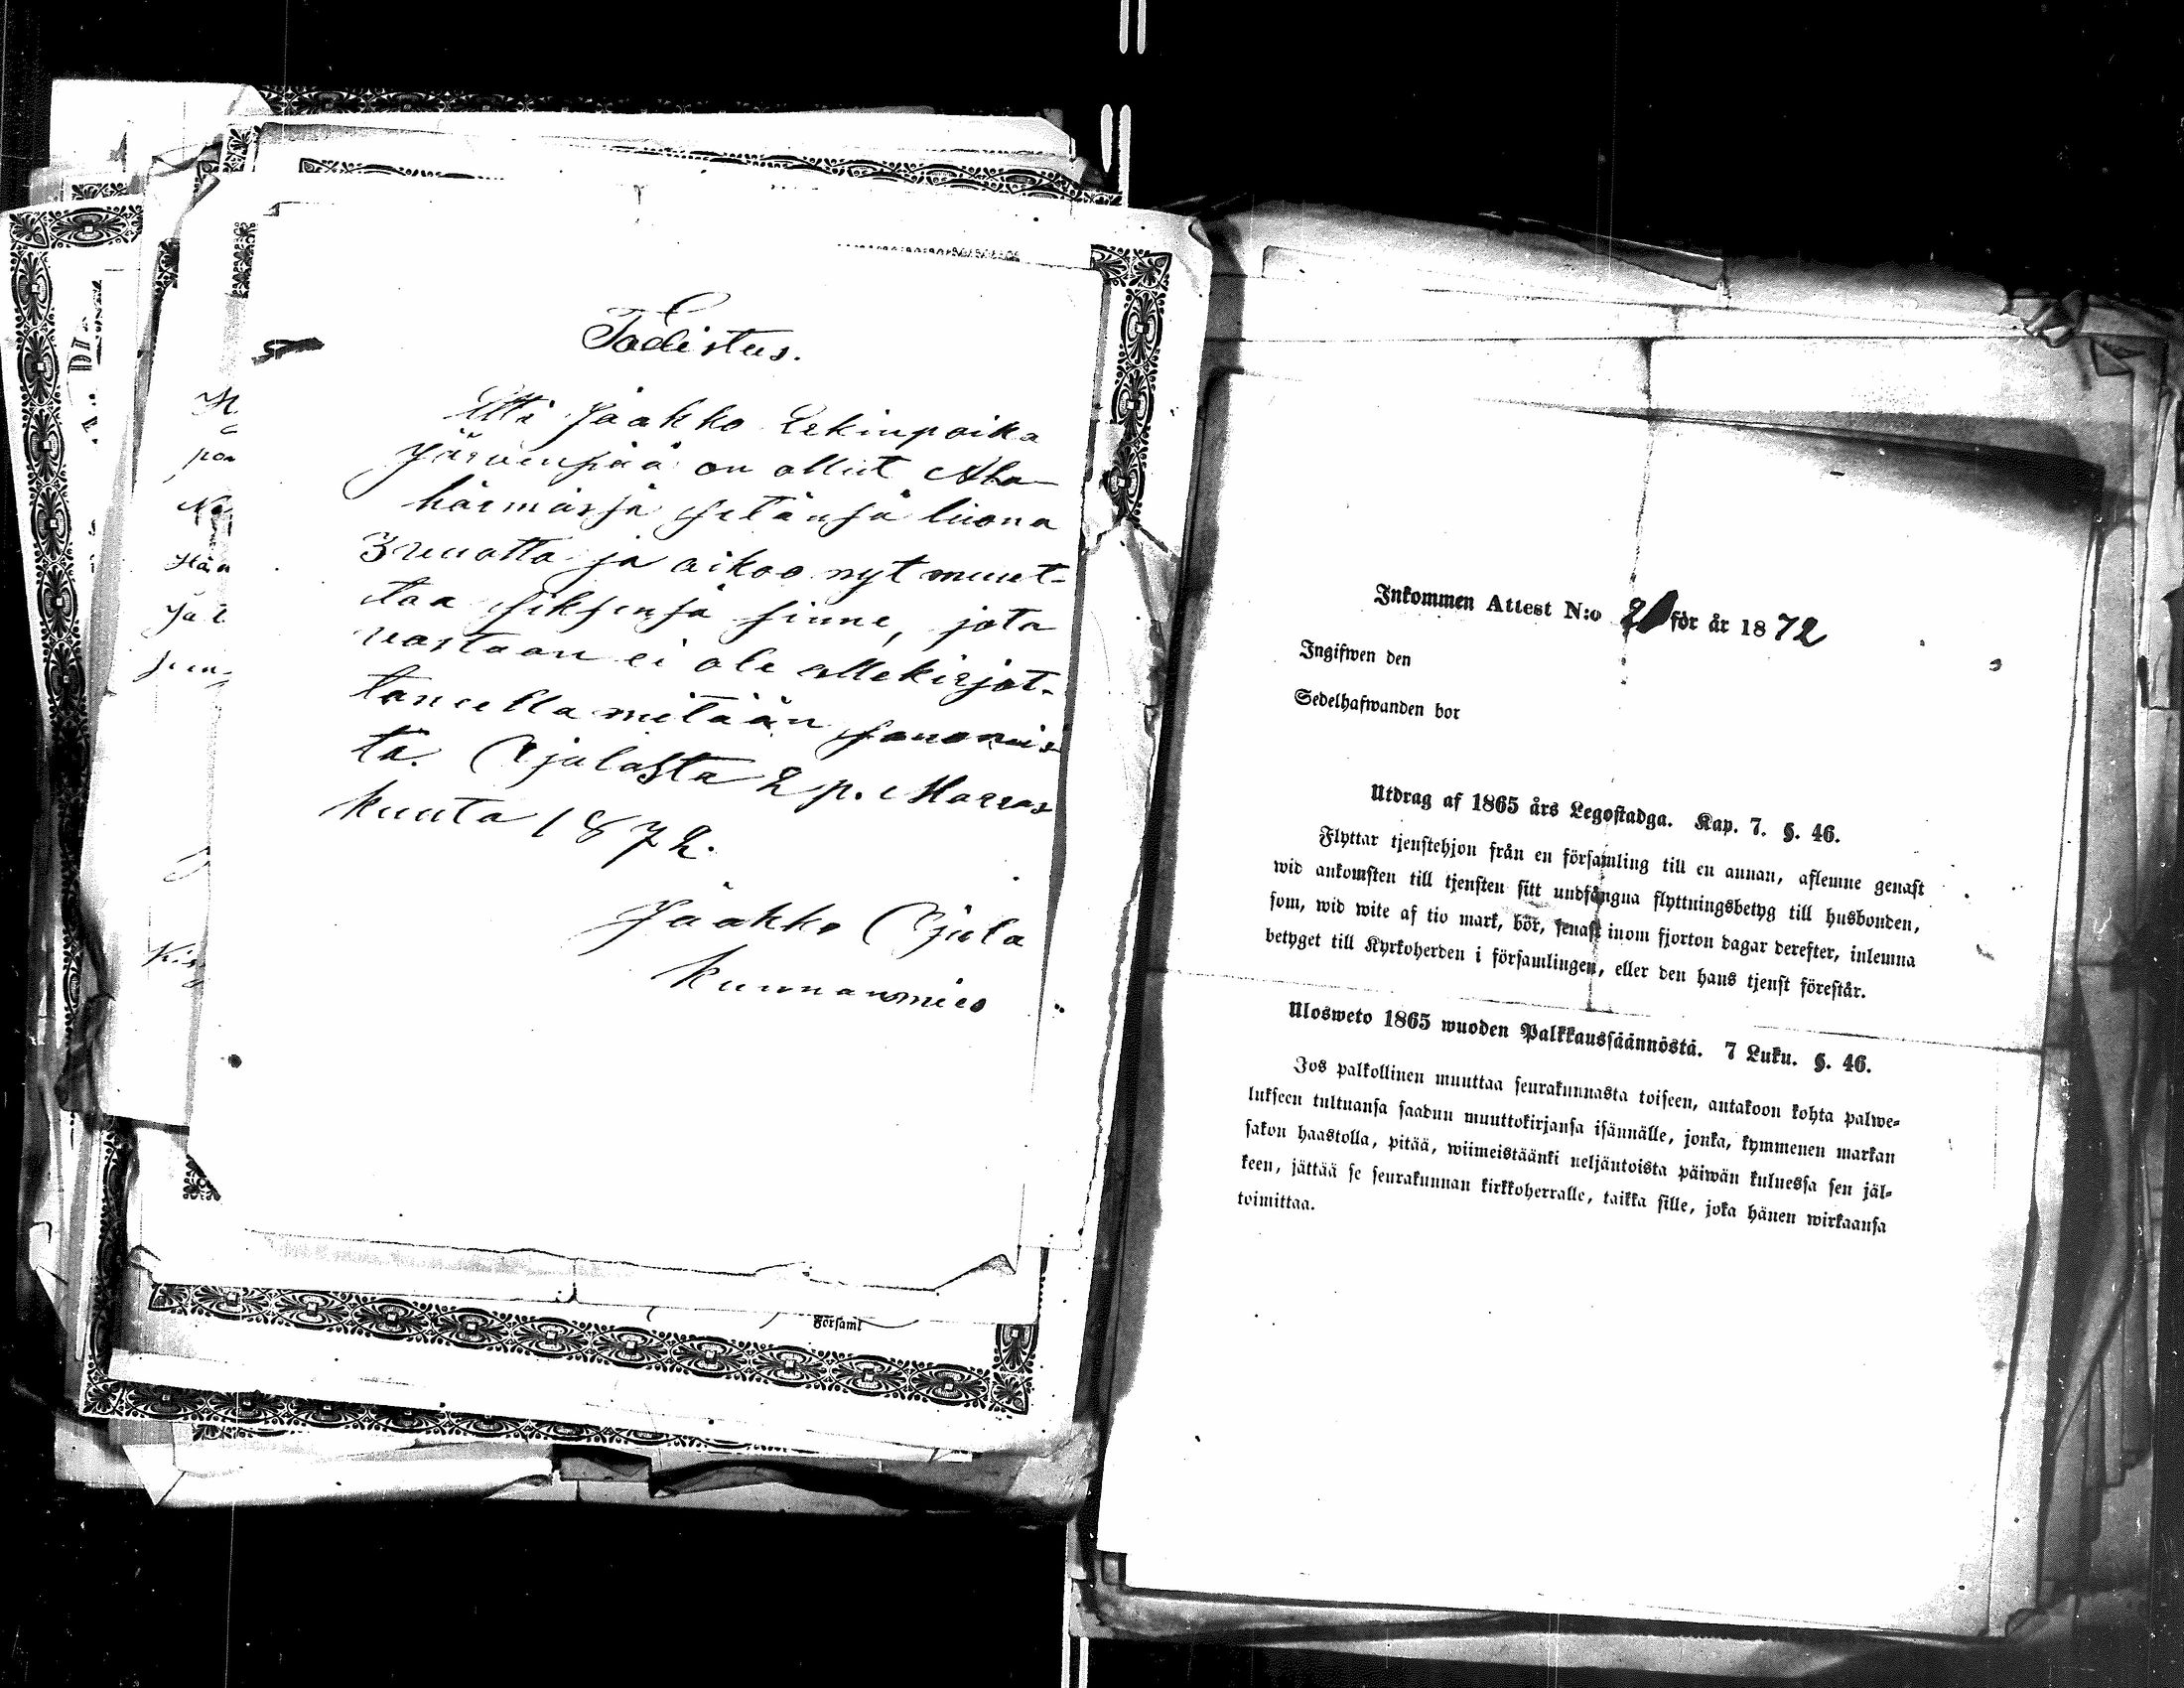 Todistus.
Että Jaakko Eekinpoika
Järvenpää on ollut Ala
härmässä setänsä luona
3 vuotta ja aikoo nyt muut-
taa siksensä sinne, jota
vastaan ei ole allekirjot-
taneella mitään sanomis
ta. Ojalasta 2 p. Marras
kuuta 1872.
Jaakko Ojala
Kunnanmies
Församl
Inkommen Attest N:o 2 för år 1872
Ingifwen den
Sedelhafwanden bor
Utdrag af 1865 års Legostadga. Kap. 7. §. 46.
Flyttar tjenstehjon från en församling till en annan, aflemne genast
wid ankomsten till tjensten sitt undfångna flyttningsbetyg till husbonden,
som, wid wite af tio mark, bör, senast inom fjorton dagar derefter, inlemna
betyget till Kyrkoherden i församlingen, eller den hans tjenst förestår.
Ulosweto 1865 wuoden Palkkaussäännöstä. 7 Luku. §. 46.
Jos palkollinen muuttaa seurakunnasta toiseen, antakoon kohta palwe-
lukseen tultuansa saadun muuttokirjansa isännälle, jonka, kymmenen markan
sakon haastolla, pitää, wiimeistäänki neljäntoista päiwän kuluessa sen jäl-
keen, jättää se seurakunnan kirkkoherralle, taikka sille, joka hänen wirkaansa
toimittaa.